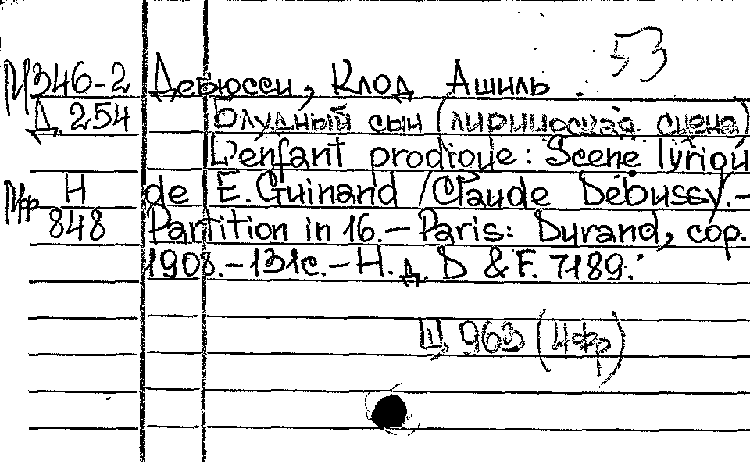 53
М346-2 Дебюсси, Клод Ашиль.
Д 254 Блудный сын (лирическая сцена)
L'enfant prodique: Scene lyriqu
Н de E. Guinand / Claude Debussy.-
848 Partition in 16.- Paris: Durand, cop.
1908.-131с.-Н.д. D & F. 7189.
Ц 963 (Нфр)